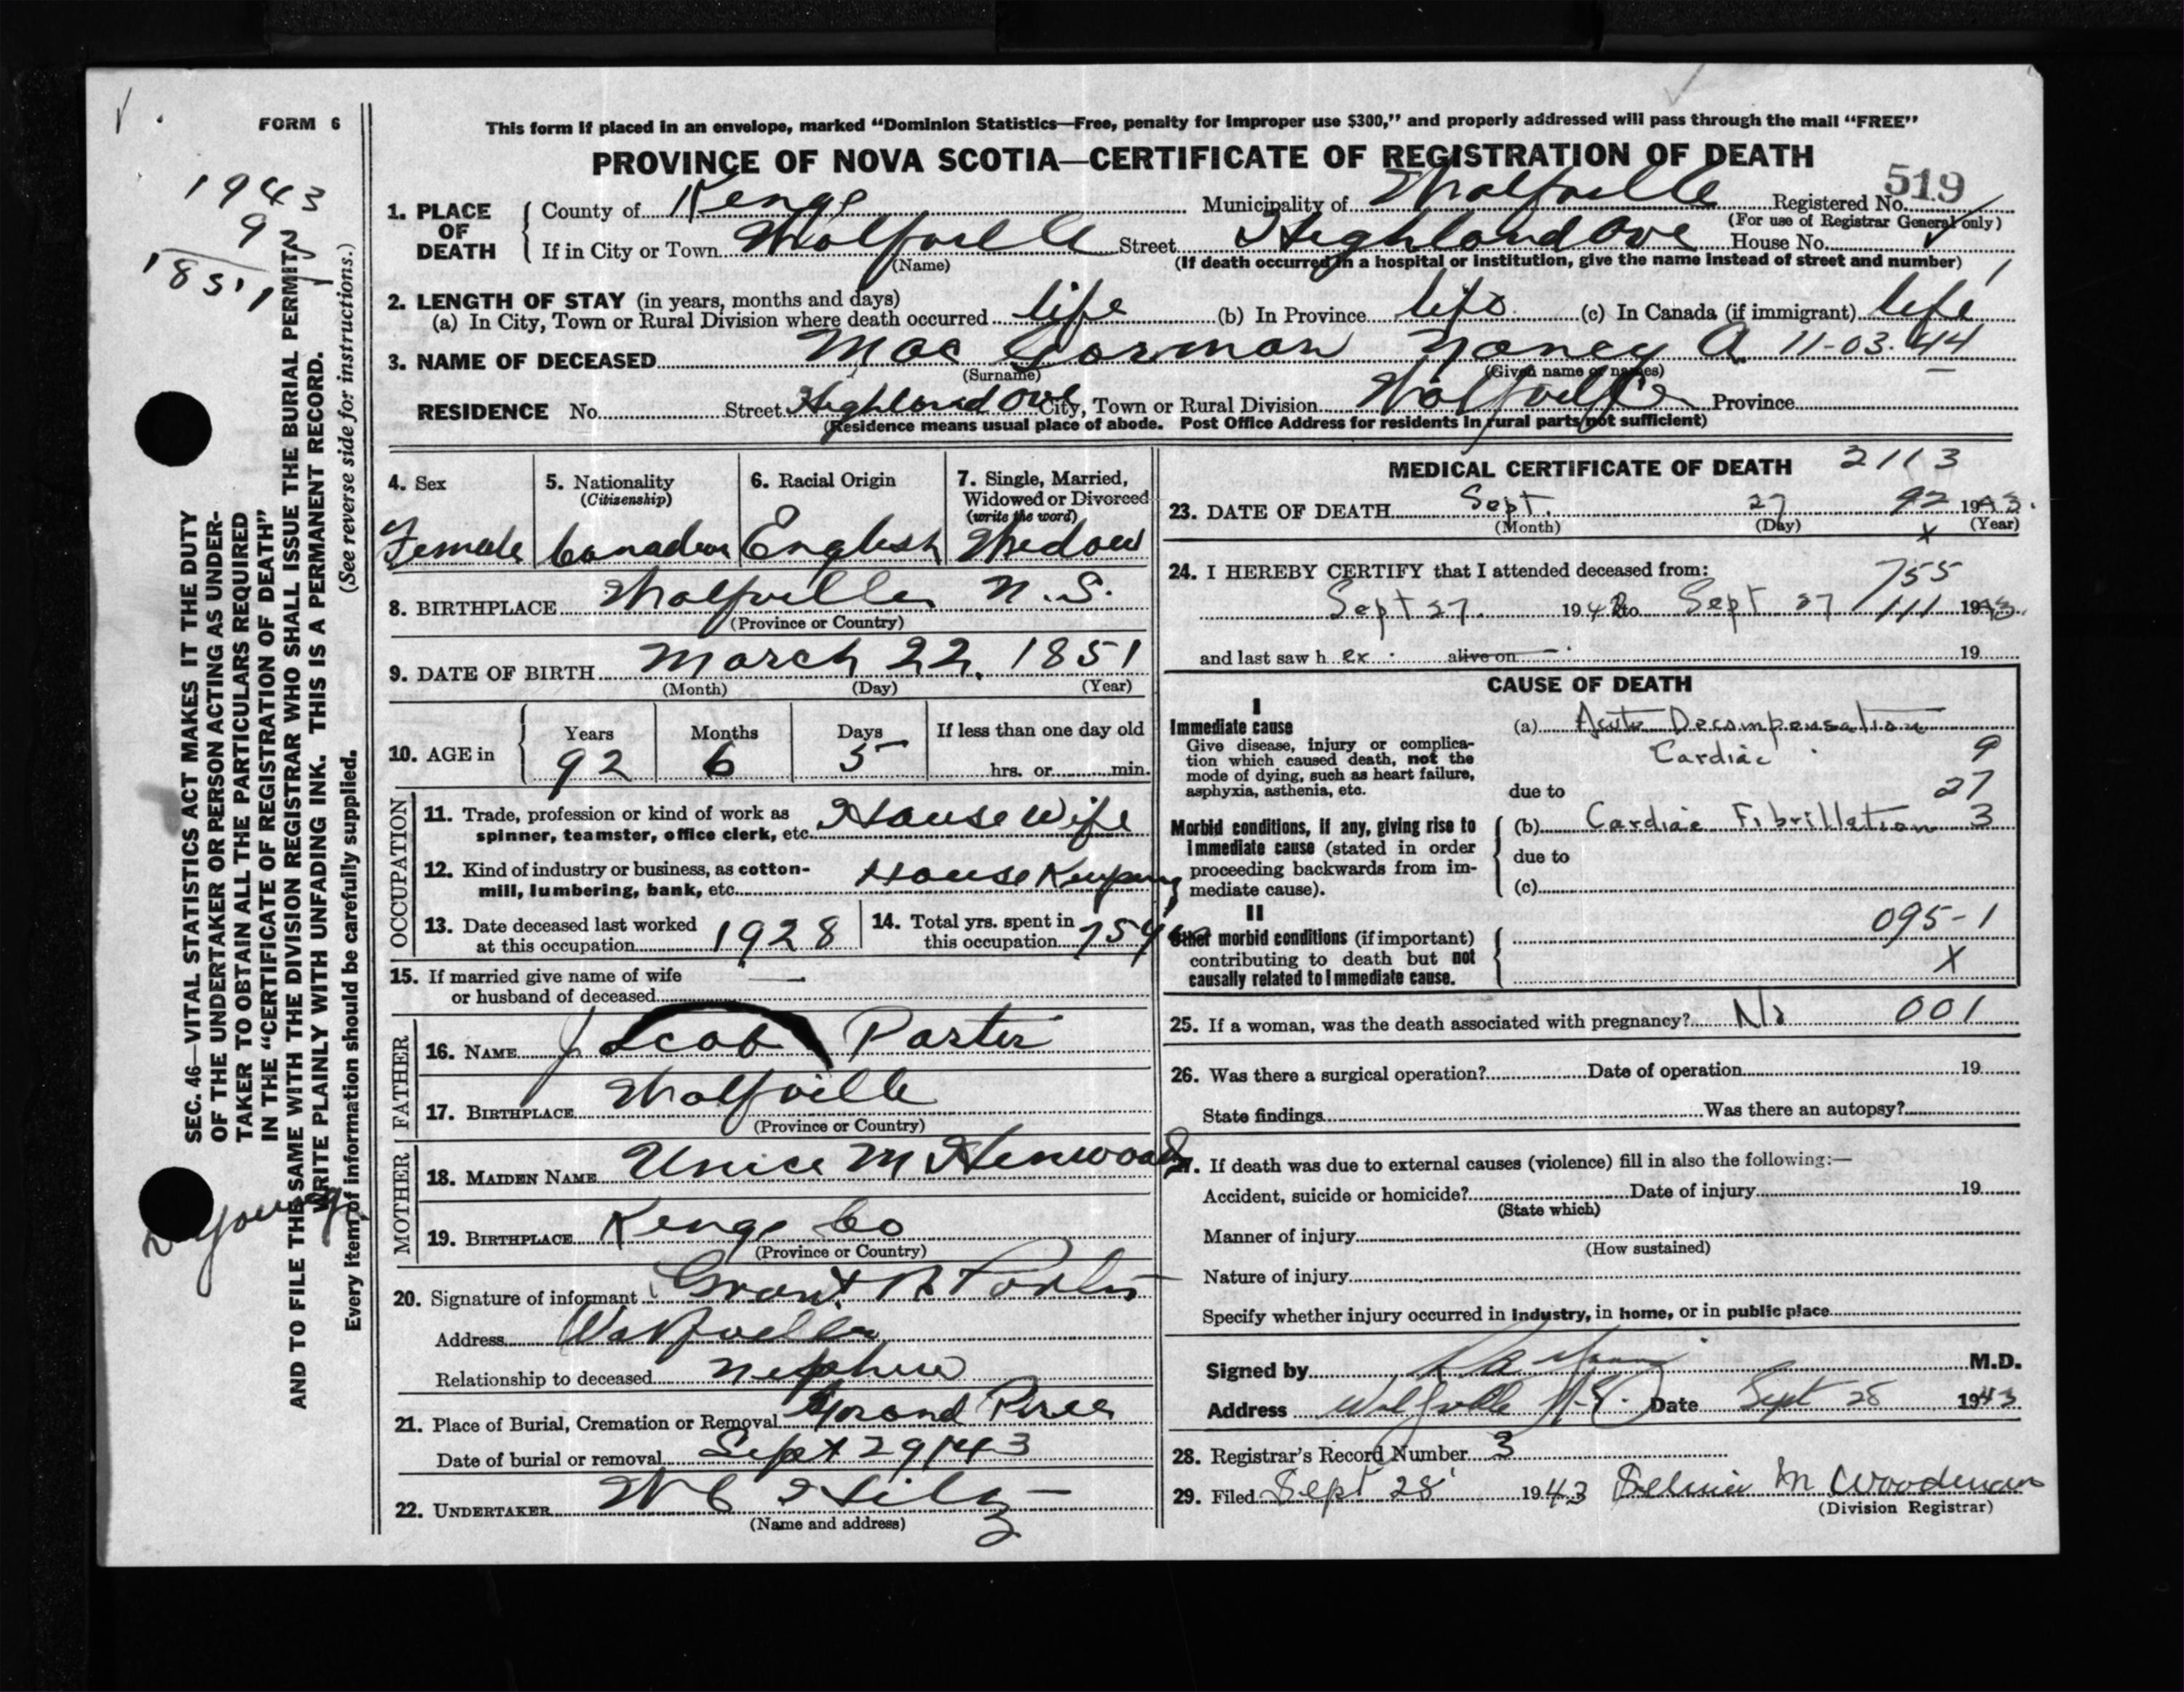 FORM 6
1943
92
1851
This form if placed in an envelope, marked "Dominion Statistics—Free, penalty for improper use $300," and properly addressed will pass through the mail "FREE"
PROVINCE OF NOVA SCOTIA—CERTIFICATE OF REGISTRATION OF DEATH
519
1. PLACE OF DEATH
County of Kings Municipality of Wolfville Registered No.
(For use of Registrar General only)
If in City or Town Wolfville Street Highland Ave House No.
(Name) (If death occurred in a hospital or institution, give the name instead of street and number)
2. LENGTH OF STAY (in years, months and days)
(a) In City, Town or Rural Division where death occurred life (b) In Province life (c) In Canada (if immigrant) life
3. NAME OF DECEASED Mac Gorman Nancy A 11-03.44
(Surname) (Given name or names)
RESIDENCE No. Street Highland Ave City, Town or Rural Division Wolfville Province
(Residence means usual place of abode. Post Office Address for residents in rural parts not sufficient)
4. Sex 5. Nationality (Citizenship) 6. Racial Origin 7. Single, Married, Widowed or Divorced (write the word)
Female Canadian English Widow
8. BIRTHPLACE Wolfville N.S.
(Province or Country)
9. DATE OF BIRTH March 22. 1851
(Month) (Day) (Year)
10. AGE in Years Months Days If less than one day old
92 6 5 hrs. or min.
OCCUPATION
11. Trade, profession or kind of work as spinner, teamster, office clerk, etc. House Wife
12. Kind of industry or business, as cotton-mill, lumbering, bank, etc. House Keeping
13. Date deceased last worked at this occupation 1928
14. Total yrs. spent in this occupation 75
15. If married give name of wife or husband of deceased —
FATHER
16. NAME Jacob Porter
17. BIRTHPLACE Wolfville
(Province or Country)
MOTHER
18. MAIDEN NAME Unice M Henwood
19. BIRTHPLACE Kings Co
(Province or Country)
20. Signature of informant Grant R Porter
Address Wolfville
Relationship to deceased nephew
21. Place of Burial, Cremation or Removal Grand Pree
Date of burial or removal Sept 29/43
22. UNDERTAKER
(Name and address)
MEDICAL CERTIFICATE OF DEATH 2113
23. DATE OF DEATH Sept. 27 92 1943.
(Month) (Day) x (Year)
24. I HEREBY CERTIFY that I attended deceased from: 755
Sept 27. 194 to Sept 27 111 1943.
and last saw h alive on 19
CAUSE OF DEATH
I
Immediate cause
Give disease, injury or complication which caused death, not the mode of dying, such as heart failure, asphyxia, asthenia, etc.
(a) Acute Decompensation
Cardiac 9
due to 27
Morbid conditions, if any, giving rise to immediate cause (stated in order proceeding backwards from immediate cause).
(b) Cardiac Fibrillation 3
due to
(c)
II
Other morbid conditions (if important) contributing to death but not causally related to immediate cause.
095-1
X
25. If a woman, was the death associated with pregnancy? No 001
26. Was there a surgical operation? Date of operation 19
State findings Was there an autopsy?
27. If death was due to external causes (violence) fill in also the following:—
Accident, suicide or homicide? Date of injury 19
(State which)
Manner of injury
(How sustained)
Nature of injury
Specify whether injury occurred in industry, in home, or in public place
Signed by M.D.
Address Wolfville N.S. Date Sept 28 1943
28. Registrar's Record Number 3
29. Filed Sept 28 1943 M Woodman
(Division Registrar)
SEC. 46—VITAL STATISTICS ACT MAKES IT THE DUTY
OF THE UNDERTAKER OR PERSON ACTING AS UNDER-
TAKER TO OBTAIN ALL THE PARTICULARS REQUIRED
IN THE "CERTIFICATE OF REGISTRATION OF DEATH"
AND TO FILE THE SAME WITH THE DIVISION REGISTRAR WHO SHALL ISSUE THE BURIAL PERMIT.
WRITE PLAINLY WITH UNFADING INK. THIS IS A PERMANENT RECORD.
Every item of information should be carefully supplied. (See reverse side for instructions.)